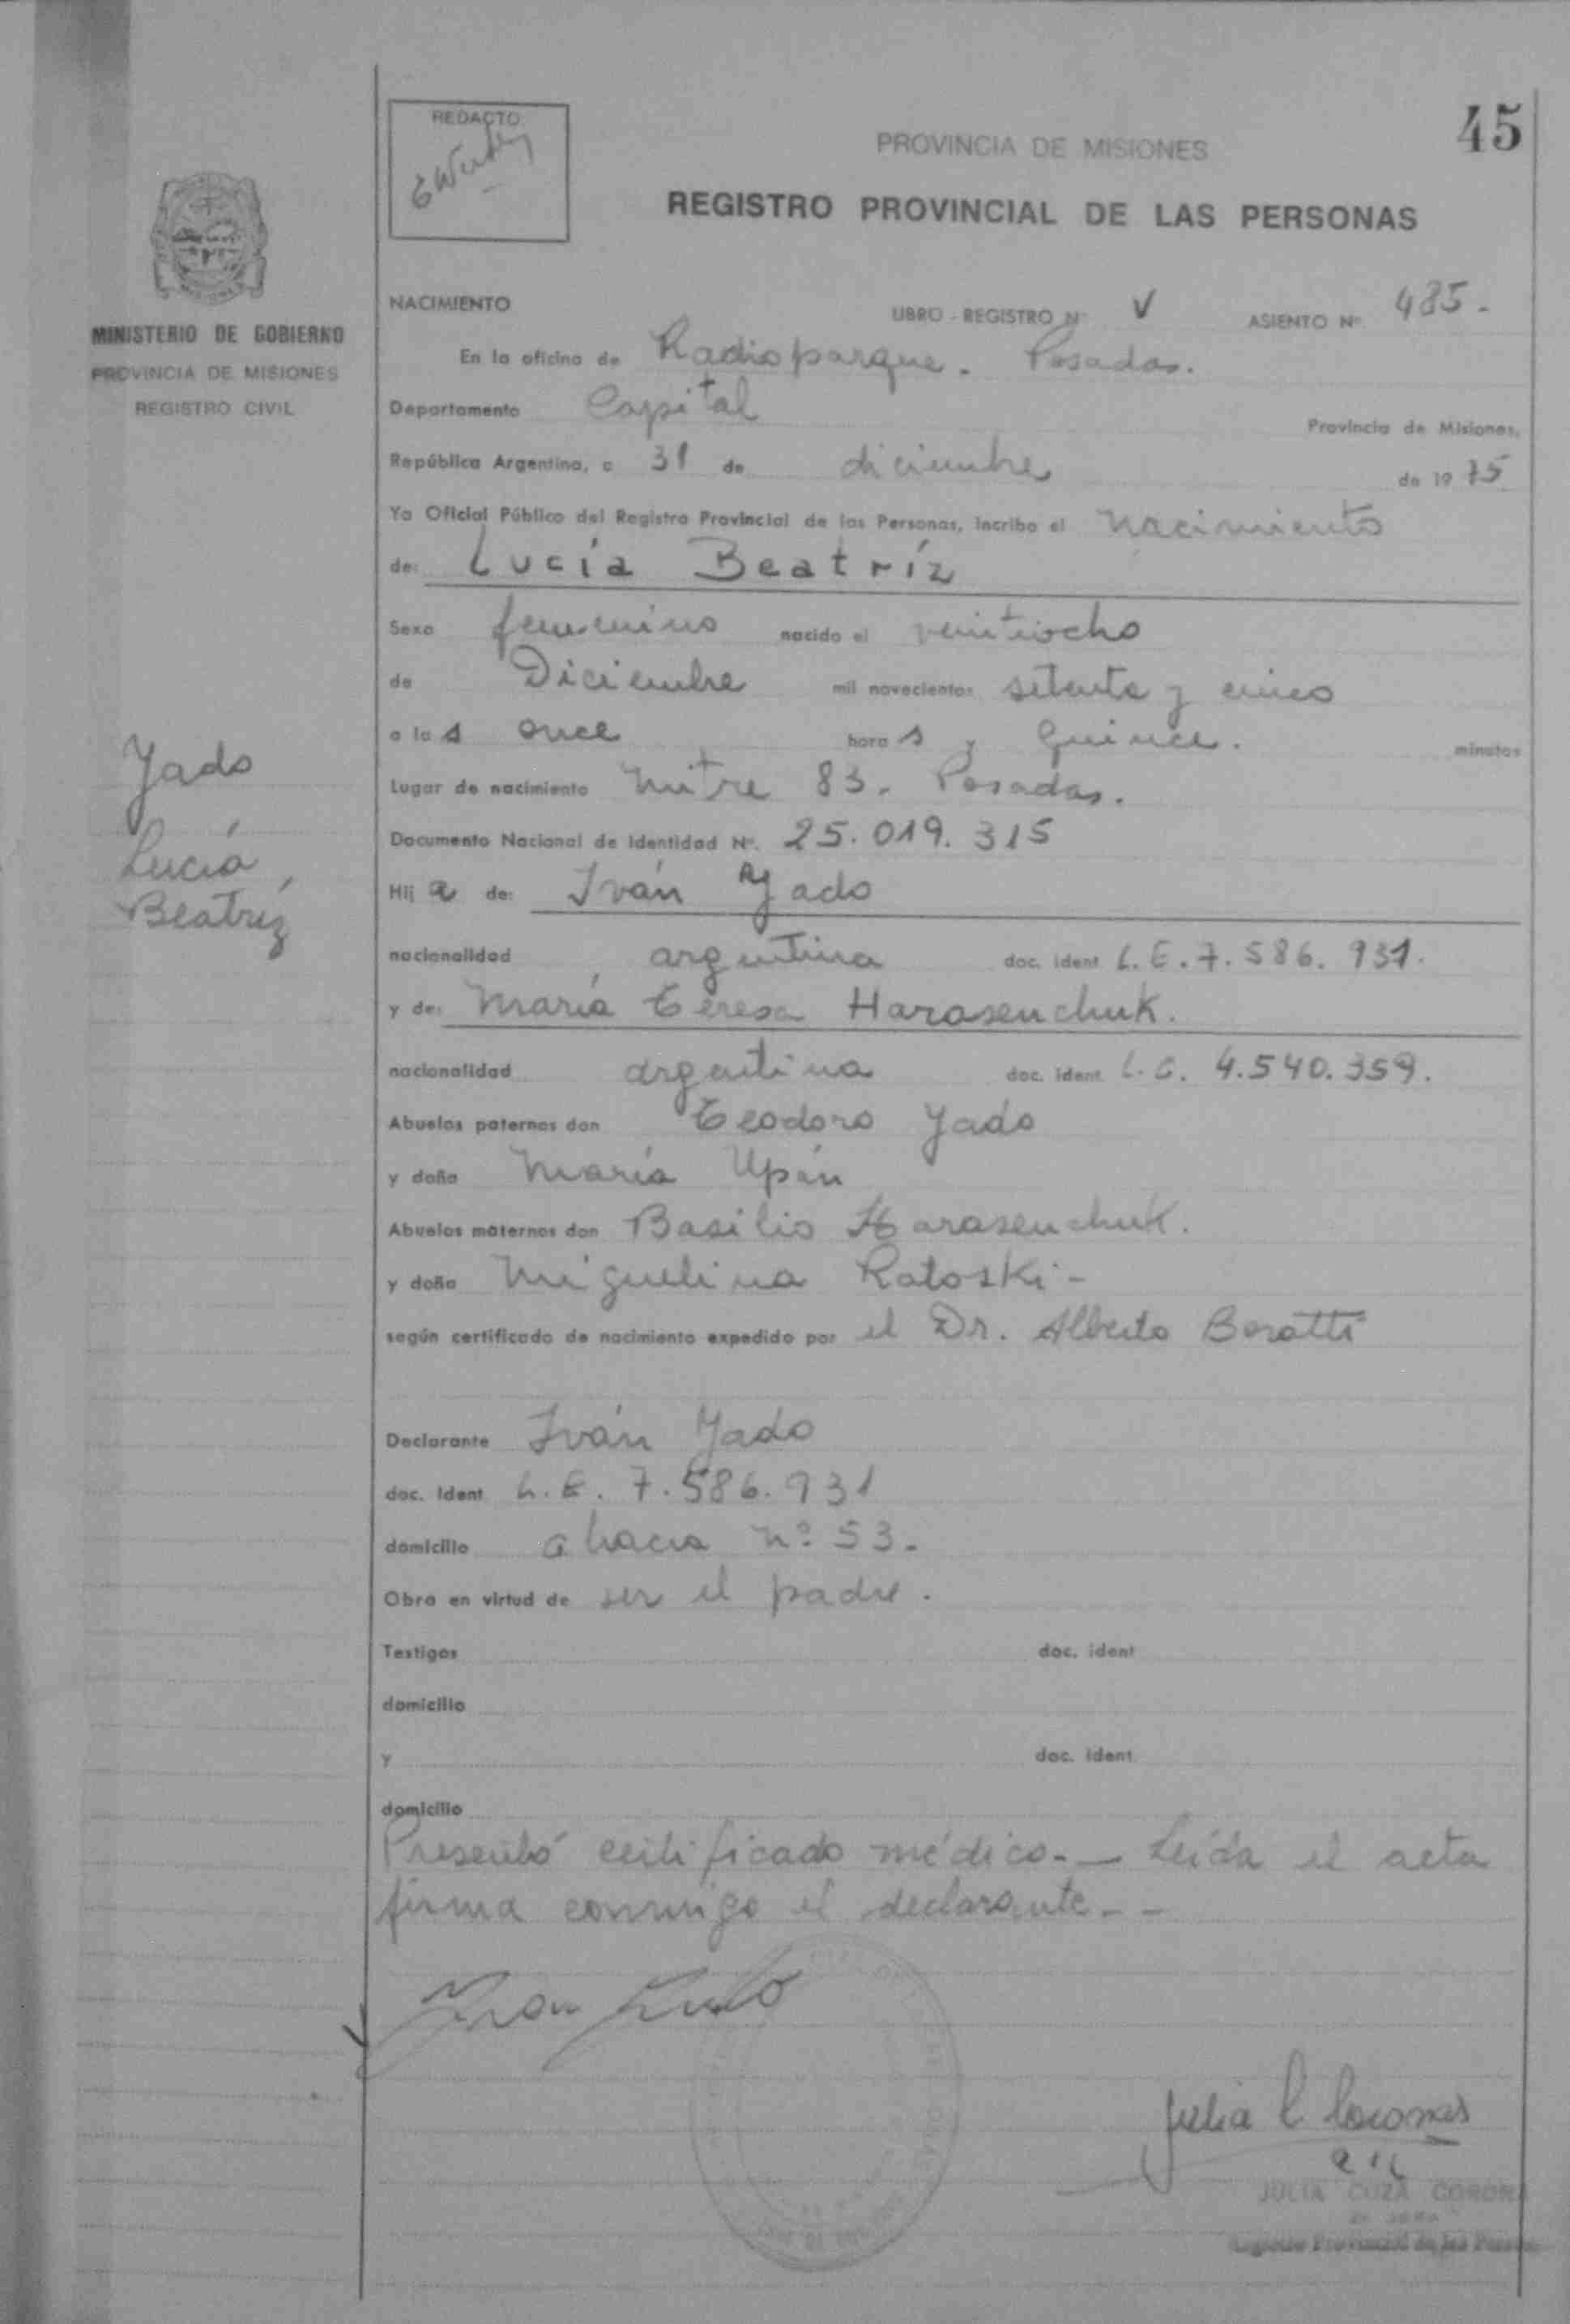 45
REDACTO:
PROVINCIA DE MISIONES
REGISTRO PROVINCIAL DE LAS PERSONAS
MINISTERIO DE GOBIERNO
PROVINCIA DE MISIONES
REGISTRO CIVIL
NACIMIENTO LIBRO - REGISTRO Nº V ASIENTO Nº 485.-
En la oficina de Radioparque. Posadas.
Departamento Capital Provincia de Misiones,
República Argentina, a 31 de diciembre de 19 75
Yo Oficial Público del Registro Provincial de las Personas, Incribo el nacimiento
de: Lucía Beatríz
Sexo femenino nacido el veintiocho
de Diciembre mil novecientos setenta y cinco
a la s once hora s y quince. minutos
Lugar de nacimiento Mitre 83. Posadas.
Documento Nacional de Identidad Nº. 25.019.315
Hij a de: Iván Yado
nacionalidad argentina doc. ident L.E. 7.586.931.
y de: María Teresa Harasenchuk.
nacionalidad argentina doc. ident. L.C. 4.540.359.
Abuelos paternos don Teodoro Yado
y doña María Upán
Abuelos maternos don Basilio Harasenchuk.
y doña Miguelina Ratoski-
según certificado de nacimiento expedido por el Dr. Alberto Boratti
Yado
Lucía
Beatriz
Declarante Iván Yado
doc. Ident L.E. 7.586.931
domicilio Nº 53.
Obra en virtud de ser el padre.
Testigos doc. ident
domicilio
y doc. ident.
domicilio
Presentó certificado médico.- Leída el acta
firma conmigo el declarante.--
Julia C Coronas
JULIA CUZA CORON
Registro Provincial de las Person